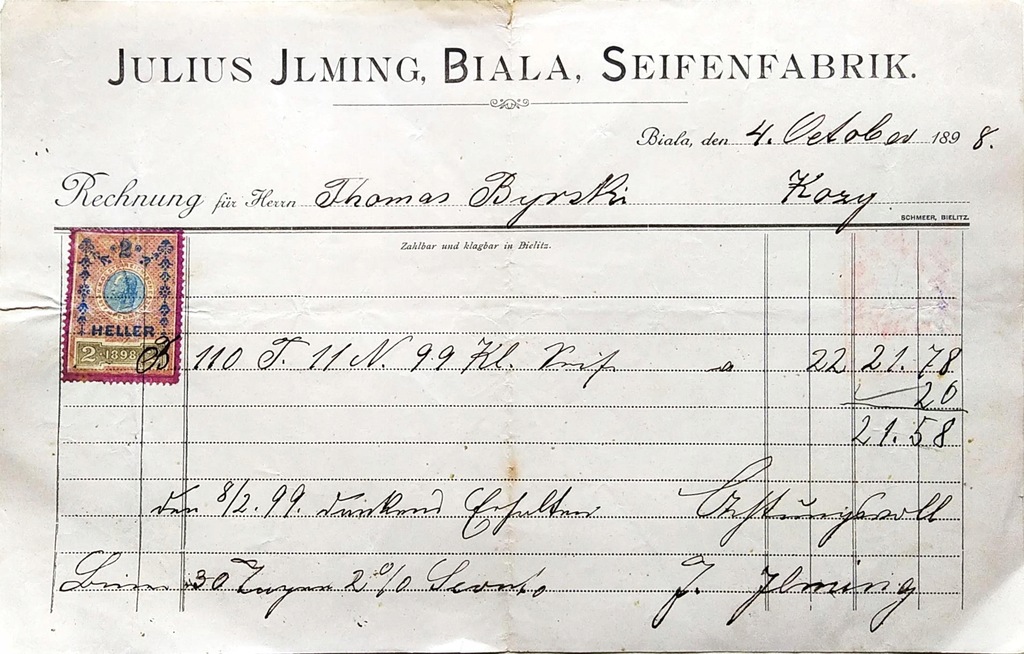 JULIUS JLMING, BIALA, SEIFENFABRIK.
Biala, den 4. October 1898.
Rechnung für Herrn Thomas Byrski Kozy
SCHMEER, BIELITZ.
Zahlbar und klagbar in Bielitz.
2
HELLER
2 1898
B 110 T. 11 N. 99 Kl. Seife a 22 21.78
20
21.58
den 8/2.99. dankend Erhalten Achtungsvoll
Binnen 30 Tagen 2% Sconto J. Jlming